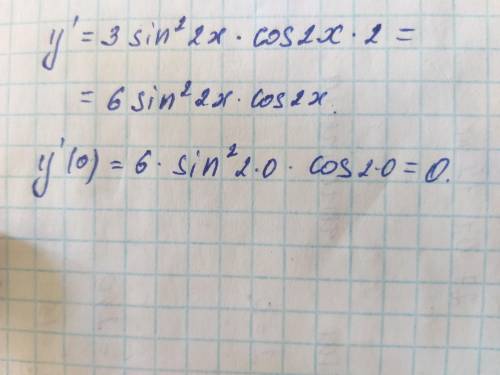 y' = 3 sin² 2x · cos 2x · 2 =
= 6 sin² 2x · cos 2x.
y'(0) = 6 · sin² 2·0 · cos 2·0 = 0.